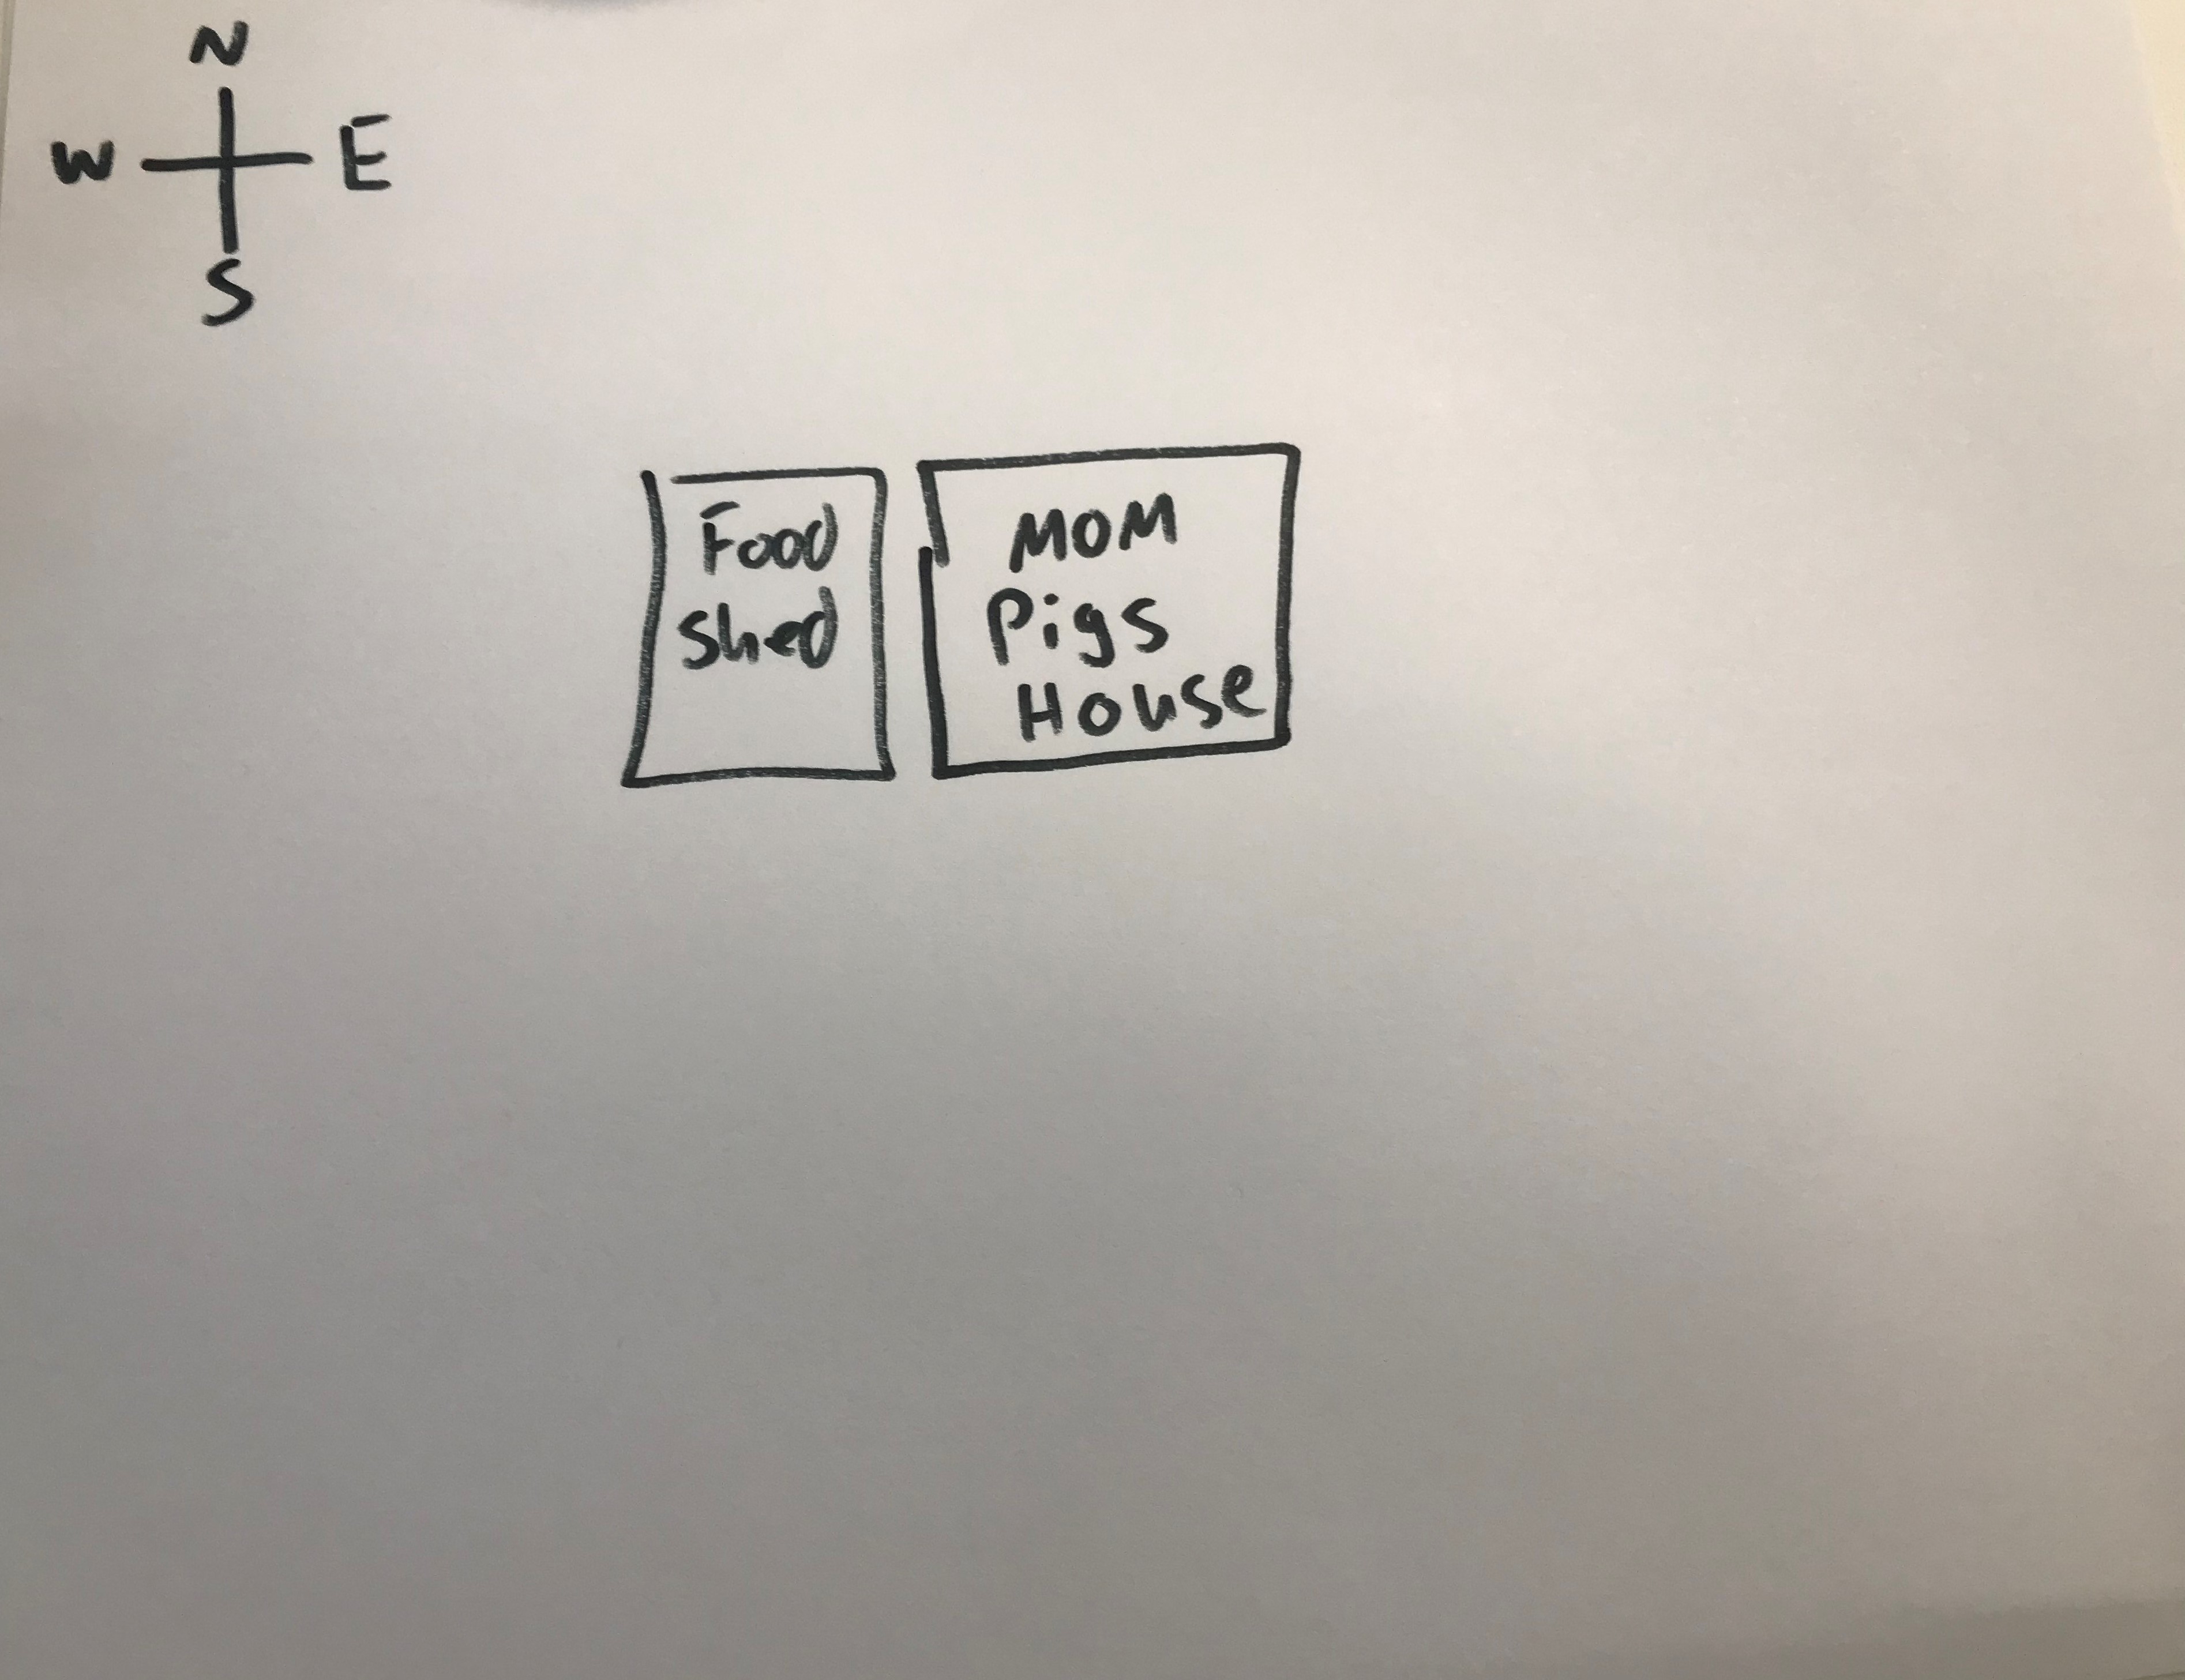 N
W E
S
Food
Shed
MOM
Pigs
House